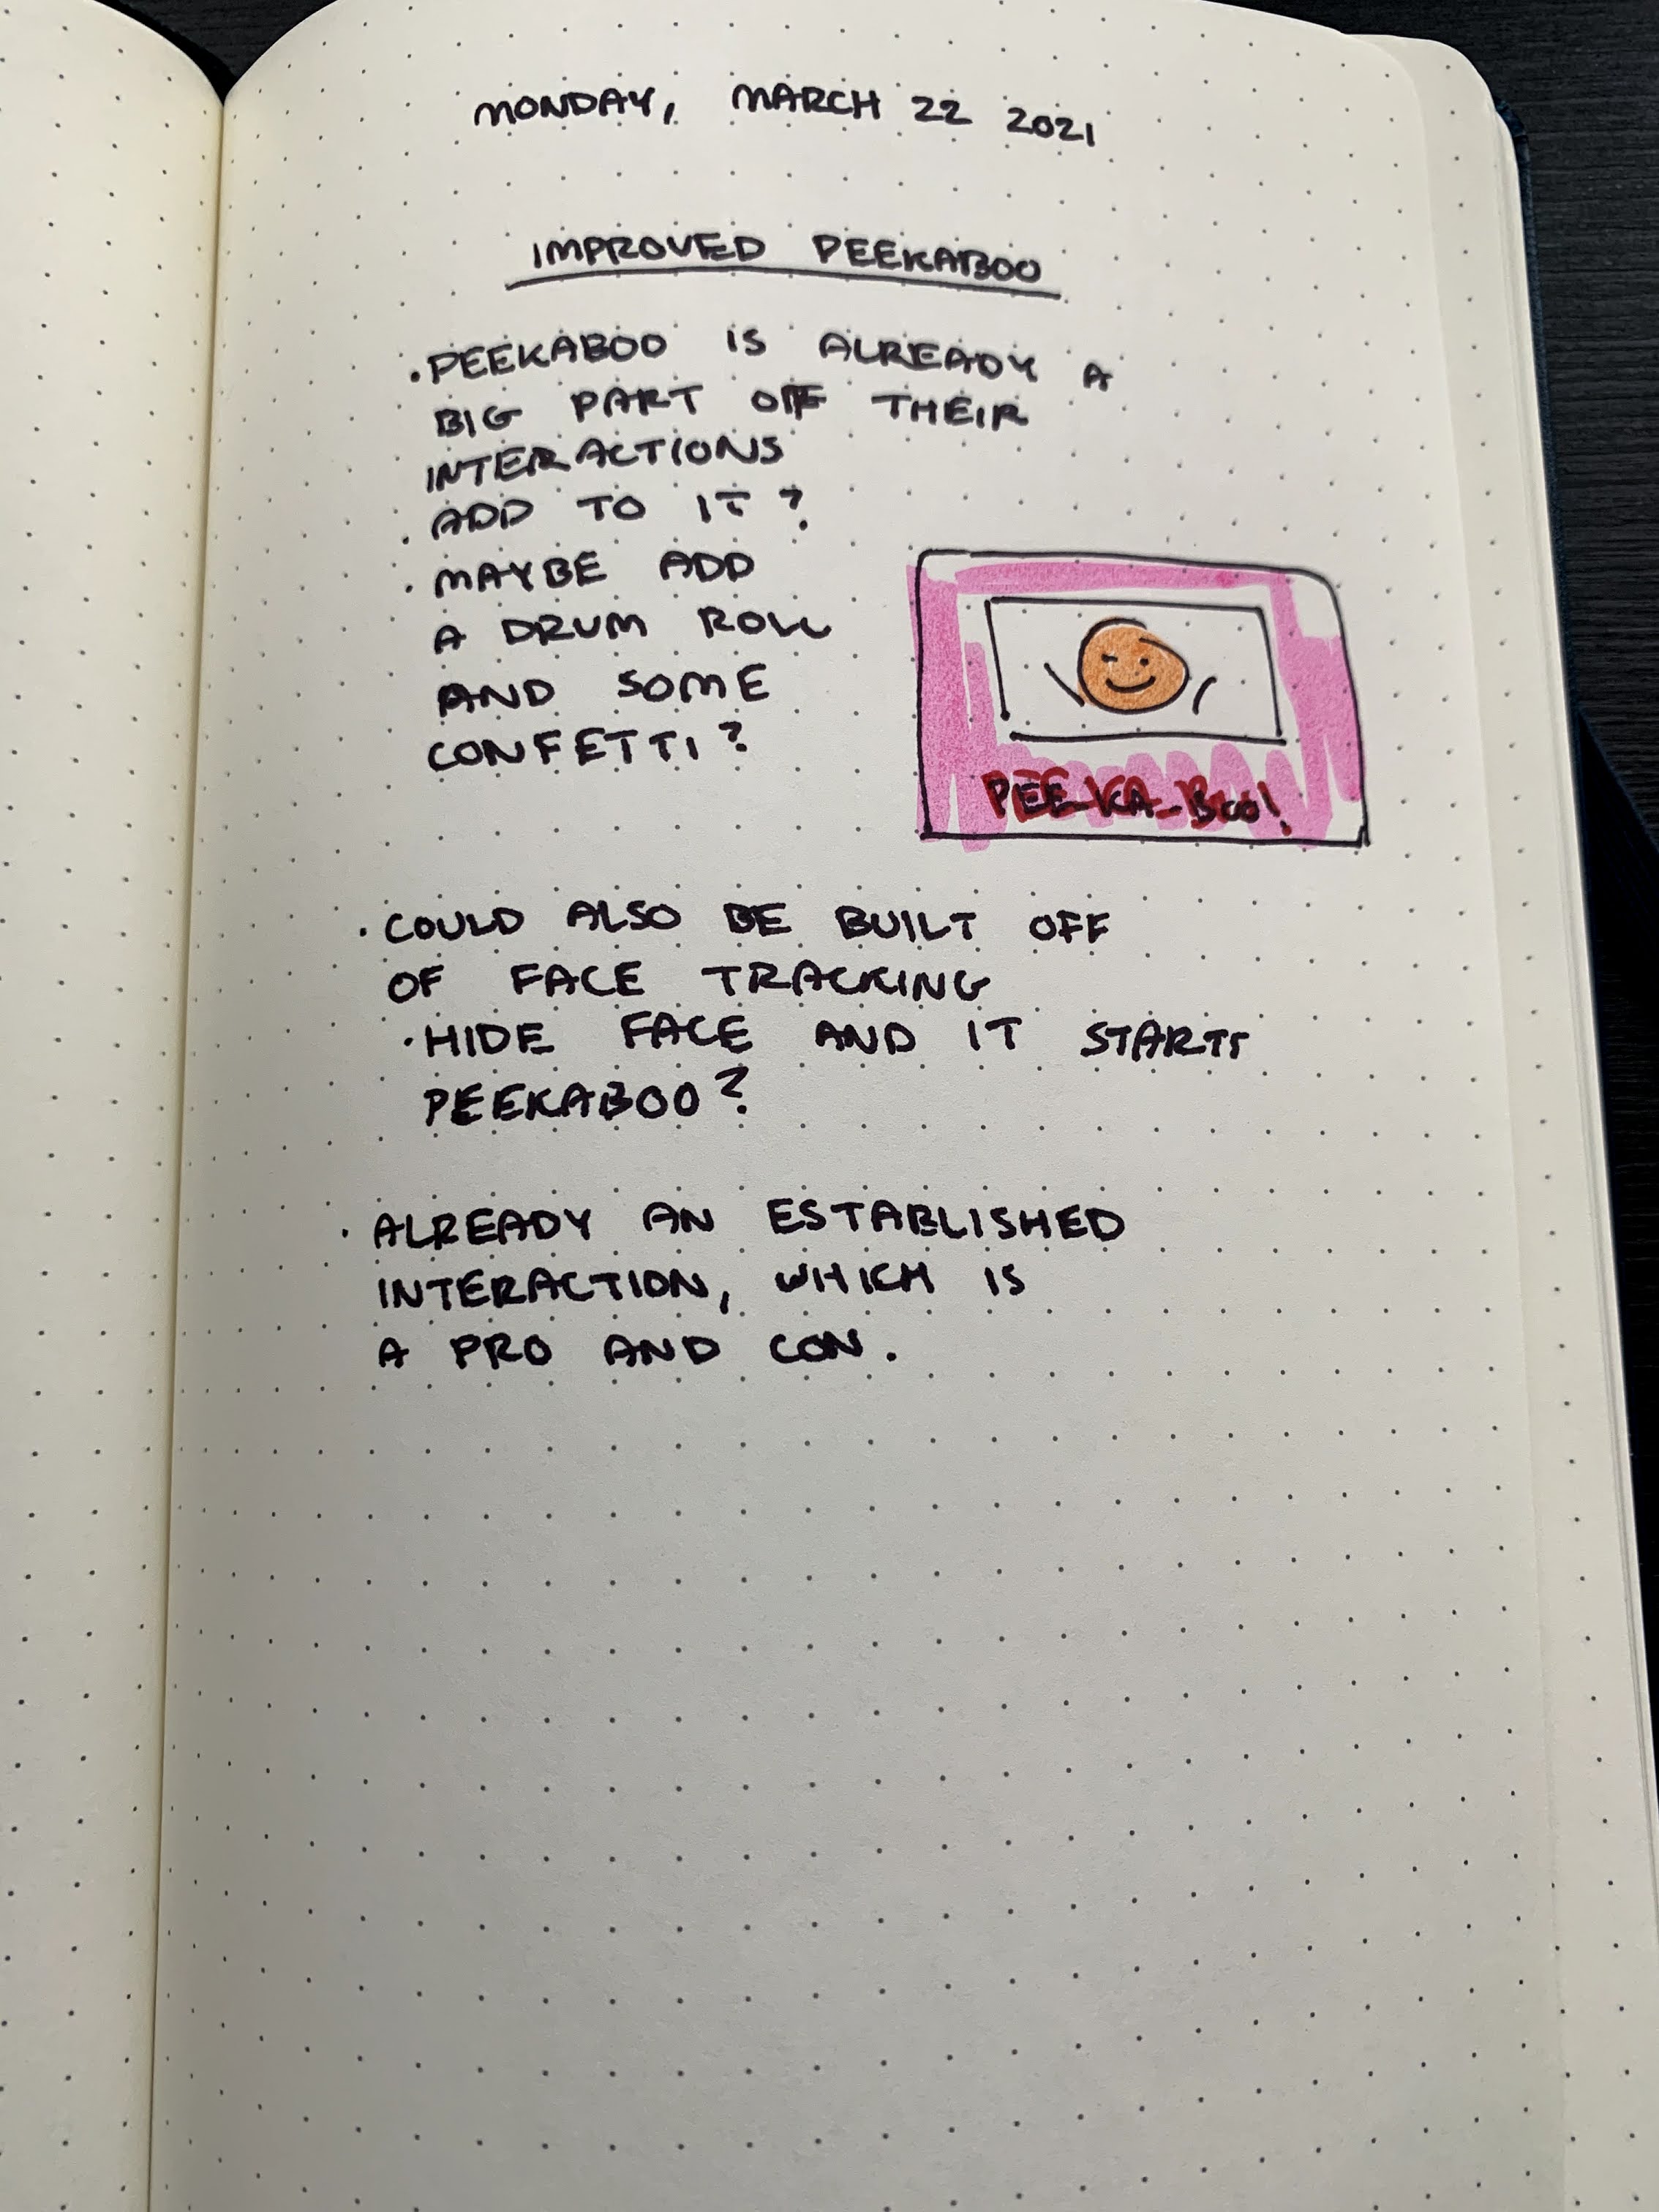 MONDAY, MARCH 22 2021
IMPROVED PEEKABOO
· PEEKABOO IS ALREADY A
BIG PART OF THEIR
INTERACTIONS
· ADD TO IT?
· MAYBE ADD
A DRUM ROLL
AND SOME
CONFETTI?
PEE-KA-BOO!
· COULD ALSO BE BUILT OFF
OF FACE TRACKING
· HIDE FACE AND IT STARTS
PEEKABOO?
· ALREADY AN ESTABLISHED
INTERACTION, WHICH IS
A PRO AND CON.